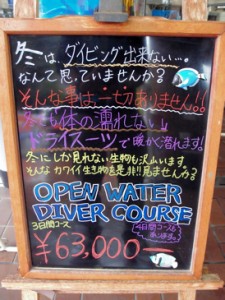 冬は、ダイビング出来ない…。
なんて思っていませんか？
そんな事は一切ありません!!
冬でも体の濡れない
ドライスーツで暖かく潜れます!
冬にしか見れない生物も沢山います
そんなカワイイ生き物を是非!!見ませんか？
OPEN WATER
DIVER COURSE
3日間コース
4日間コースも
あります。
¥63,000